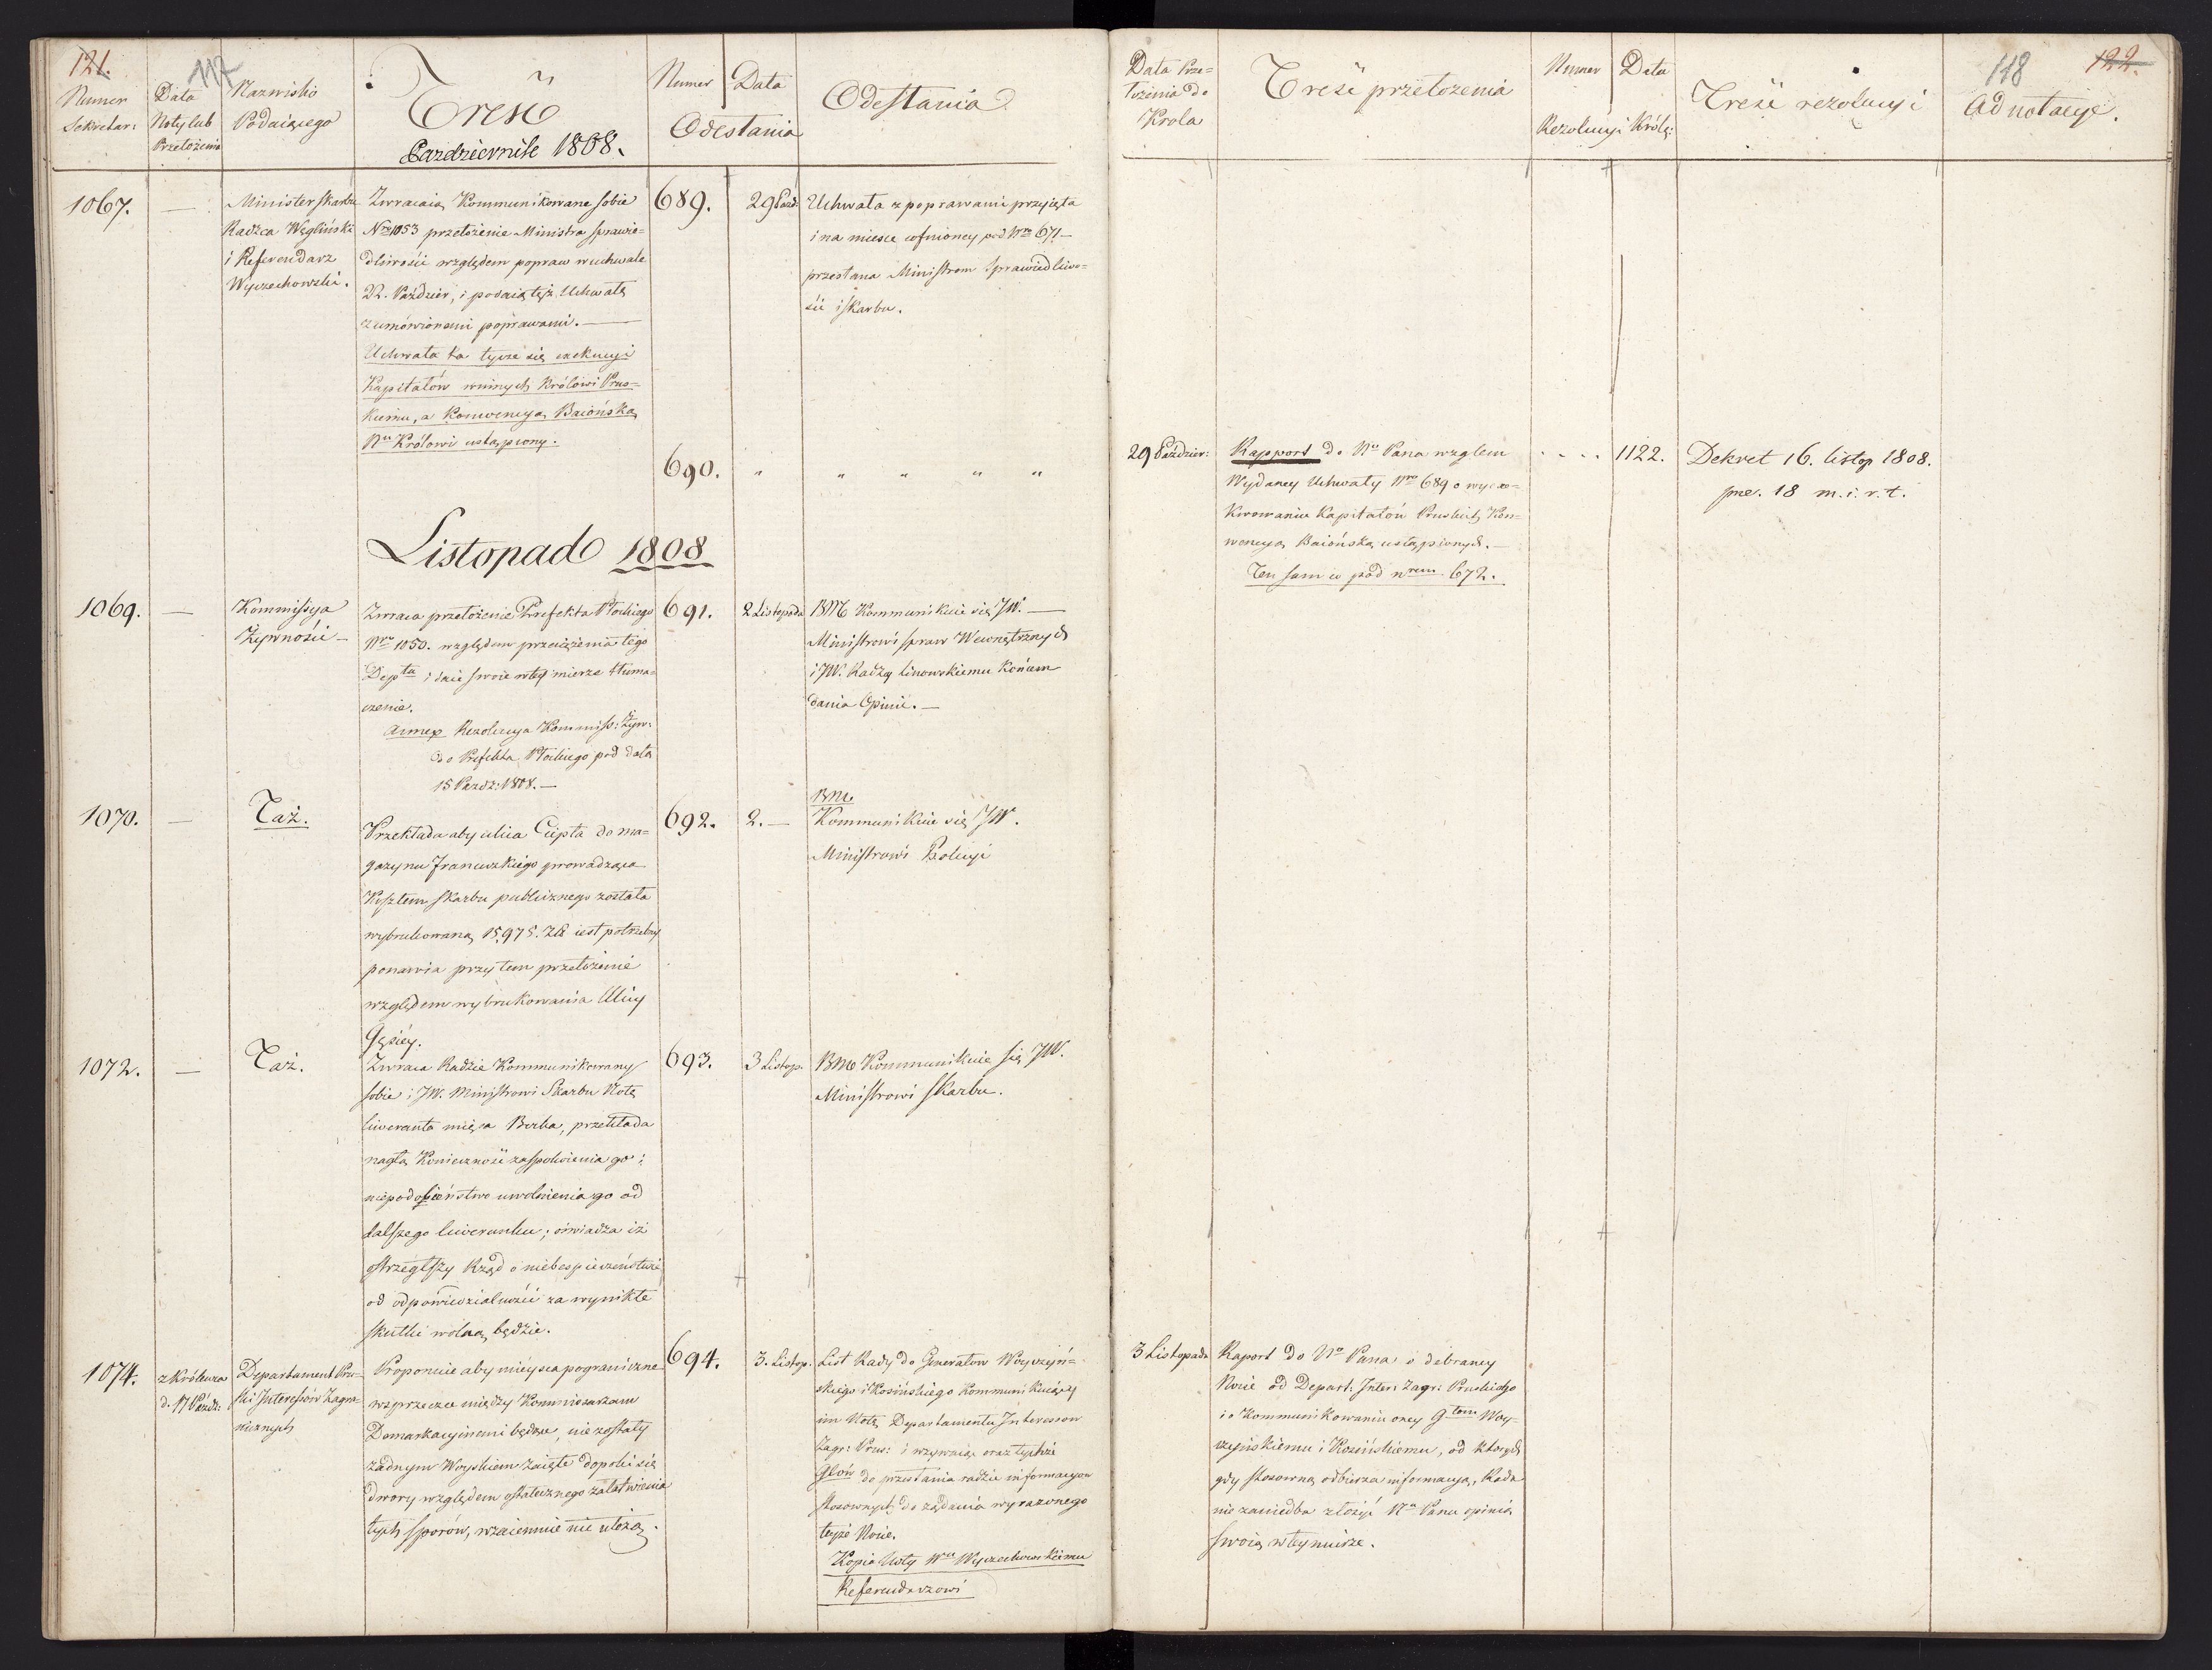 121.
117
Numer
Sekretar:
Data
Noty lub
Przełożenia
Nazwisko
Podaiącego
Treść
Październik 1808.
Numer
Data
Odesłania
Odesłania
1067.
—
Minister Skarbu
Radzca Węgliński
i Referendarz
Wyczechowski.
Zwracaią Kommunikowane sobie
Nro 1053 przełożenie Ministra sprawie=
dliwości względem popraw w uchwale
22. Paździer, i podaią tęż Uchwałę
z umówionemi poprawami. —
Uchwała ta tycze się exekucyi
Kapitałów winnych Królowi Prus=
kiemu, a Konwencyą Baiońską
Nu Królowi ustąpiony.
689.
29 Paźd:
Uchwała z poprawami przyięta
i na miesce cofnioney pod Nro 671 —
przesłana Ministrom Sprawiedliwo=
ści i Skarbu.
690.
" " " " "
Listopad 1808
1069.
—
Kommissya
Żywności —
Zwraca przełożenie Prefekta Płockiego
Nro 1050. względem przeciążenia tego
Depta i daie swoie w tey mierze tłuma=
czenie.
Annex Rezolucya Kommiss: Żyw:
do Prefekta Płockiego pod datą
15 Paźdz: 1808. —
691.
2 Listopada
BM Kommunikuie się JW. —
Ministrowi spraw Wewnętrznych
i JW. Radzcy Linowskiemu końcem
dania Opinii. —
1070.
—
Taż.
Przekłada aby ulica Ciepła do ma=
gazynu francuzkiego prowadząca
Kosztem skarbu publicznego została
wybrukowaną 15,975. Zł. iest potrzebny
ponawia przytem przełożenie
względem wybrukowania Ulicy
Gęsiey.
692.
2. —
BM
Kommunikuie się JW.
Ministrowi Policyi
1072.
—
Taż.
Zwraca Radzie Kommunikowany
sobie i JW. Ministrowi Skarbu Notę
liweranta mięsa Berka, przekłada
nagłą Konieczność zaspokoienia go i
niepodobieństwo uwolnienia go od
dalszego liwerunku; oświadza iż
ostrzegłszy Rząd o niebespieczeństwie
od odpowiedzialności za wynikłe
skutki wolną będzie.
693.
3 Listop.
BM Kommunikuie się JW.
Ministrowi Skarbu.
1074.
z Królewca
d. 17 Paźdz:
Departament Pru=
ski Interessów Zagra=
nicznych
Proponuie aby mieysca pograniczne
w sprzeczce między Kommissarzami
Demarkacyinemi będące, nie zostały
żadnym Woyskiem zaięte dopoki się
dwory względem ostatecznego załatwienia
tych sporów, wzaiemnie nie ułożą.
694.
3. Listop.
List Rady do Generałow Woyczyń=
skiego i Kosińskiego Kommunikuiący
im Notę Departamentu Interessow
Zagr: Prus: i wzywaiąc oraz tychże
Głów do przesłania radzie informacyow
stosownych do żądania wyrażonego
teyże Nocie.
Kopia Noty Wu Wyczechowskiemu
Referendarzowi
118
122.
Data Prze=
łożenia do
Krola
Treść przełożenia
Numer
Data
Rezolucyi Królę:
Treść rezolucyi
Adnotacye.
29 Paździer:
Rapport do Nu Pana wzglem
Wydaney Uchwały Nro 689 o wyexe=
kwowaniu Kapitałów Pruskich Kon=
wencyą Baiońską ustąpionych. —
Ten sam co pod nrem 672.
. . . .
1122.
Dekret 16. listop 1808.
pne. 18 m. i. r. t.
3 Listopada
Raport do No Pana o debraney
Nocie od Depart: Inter: Zagr: Pruskiego
i o Kommunikowaniu oney Głom Woy=
czyńskiemu i Kosińskiemu, od ktorych
gdy stosowną odbierza informacyą, Rada
nie zaniedba złożyć Nu Panu opinią
swoią w tey mierze.